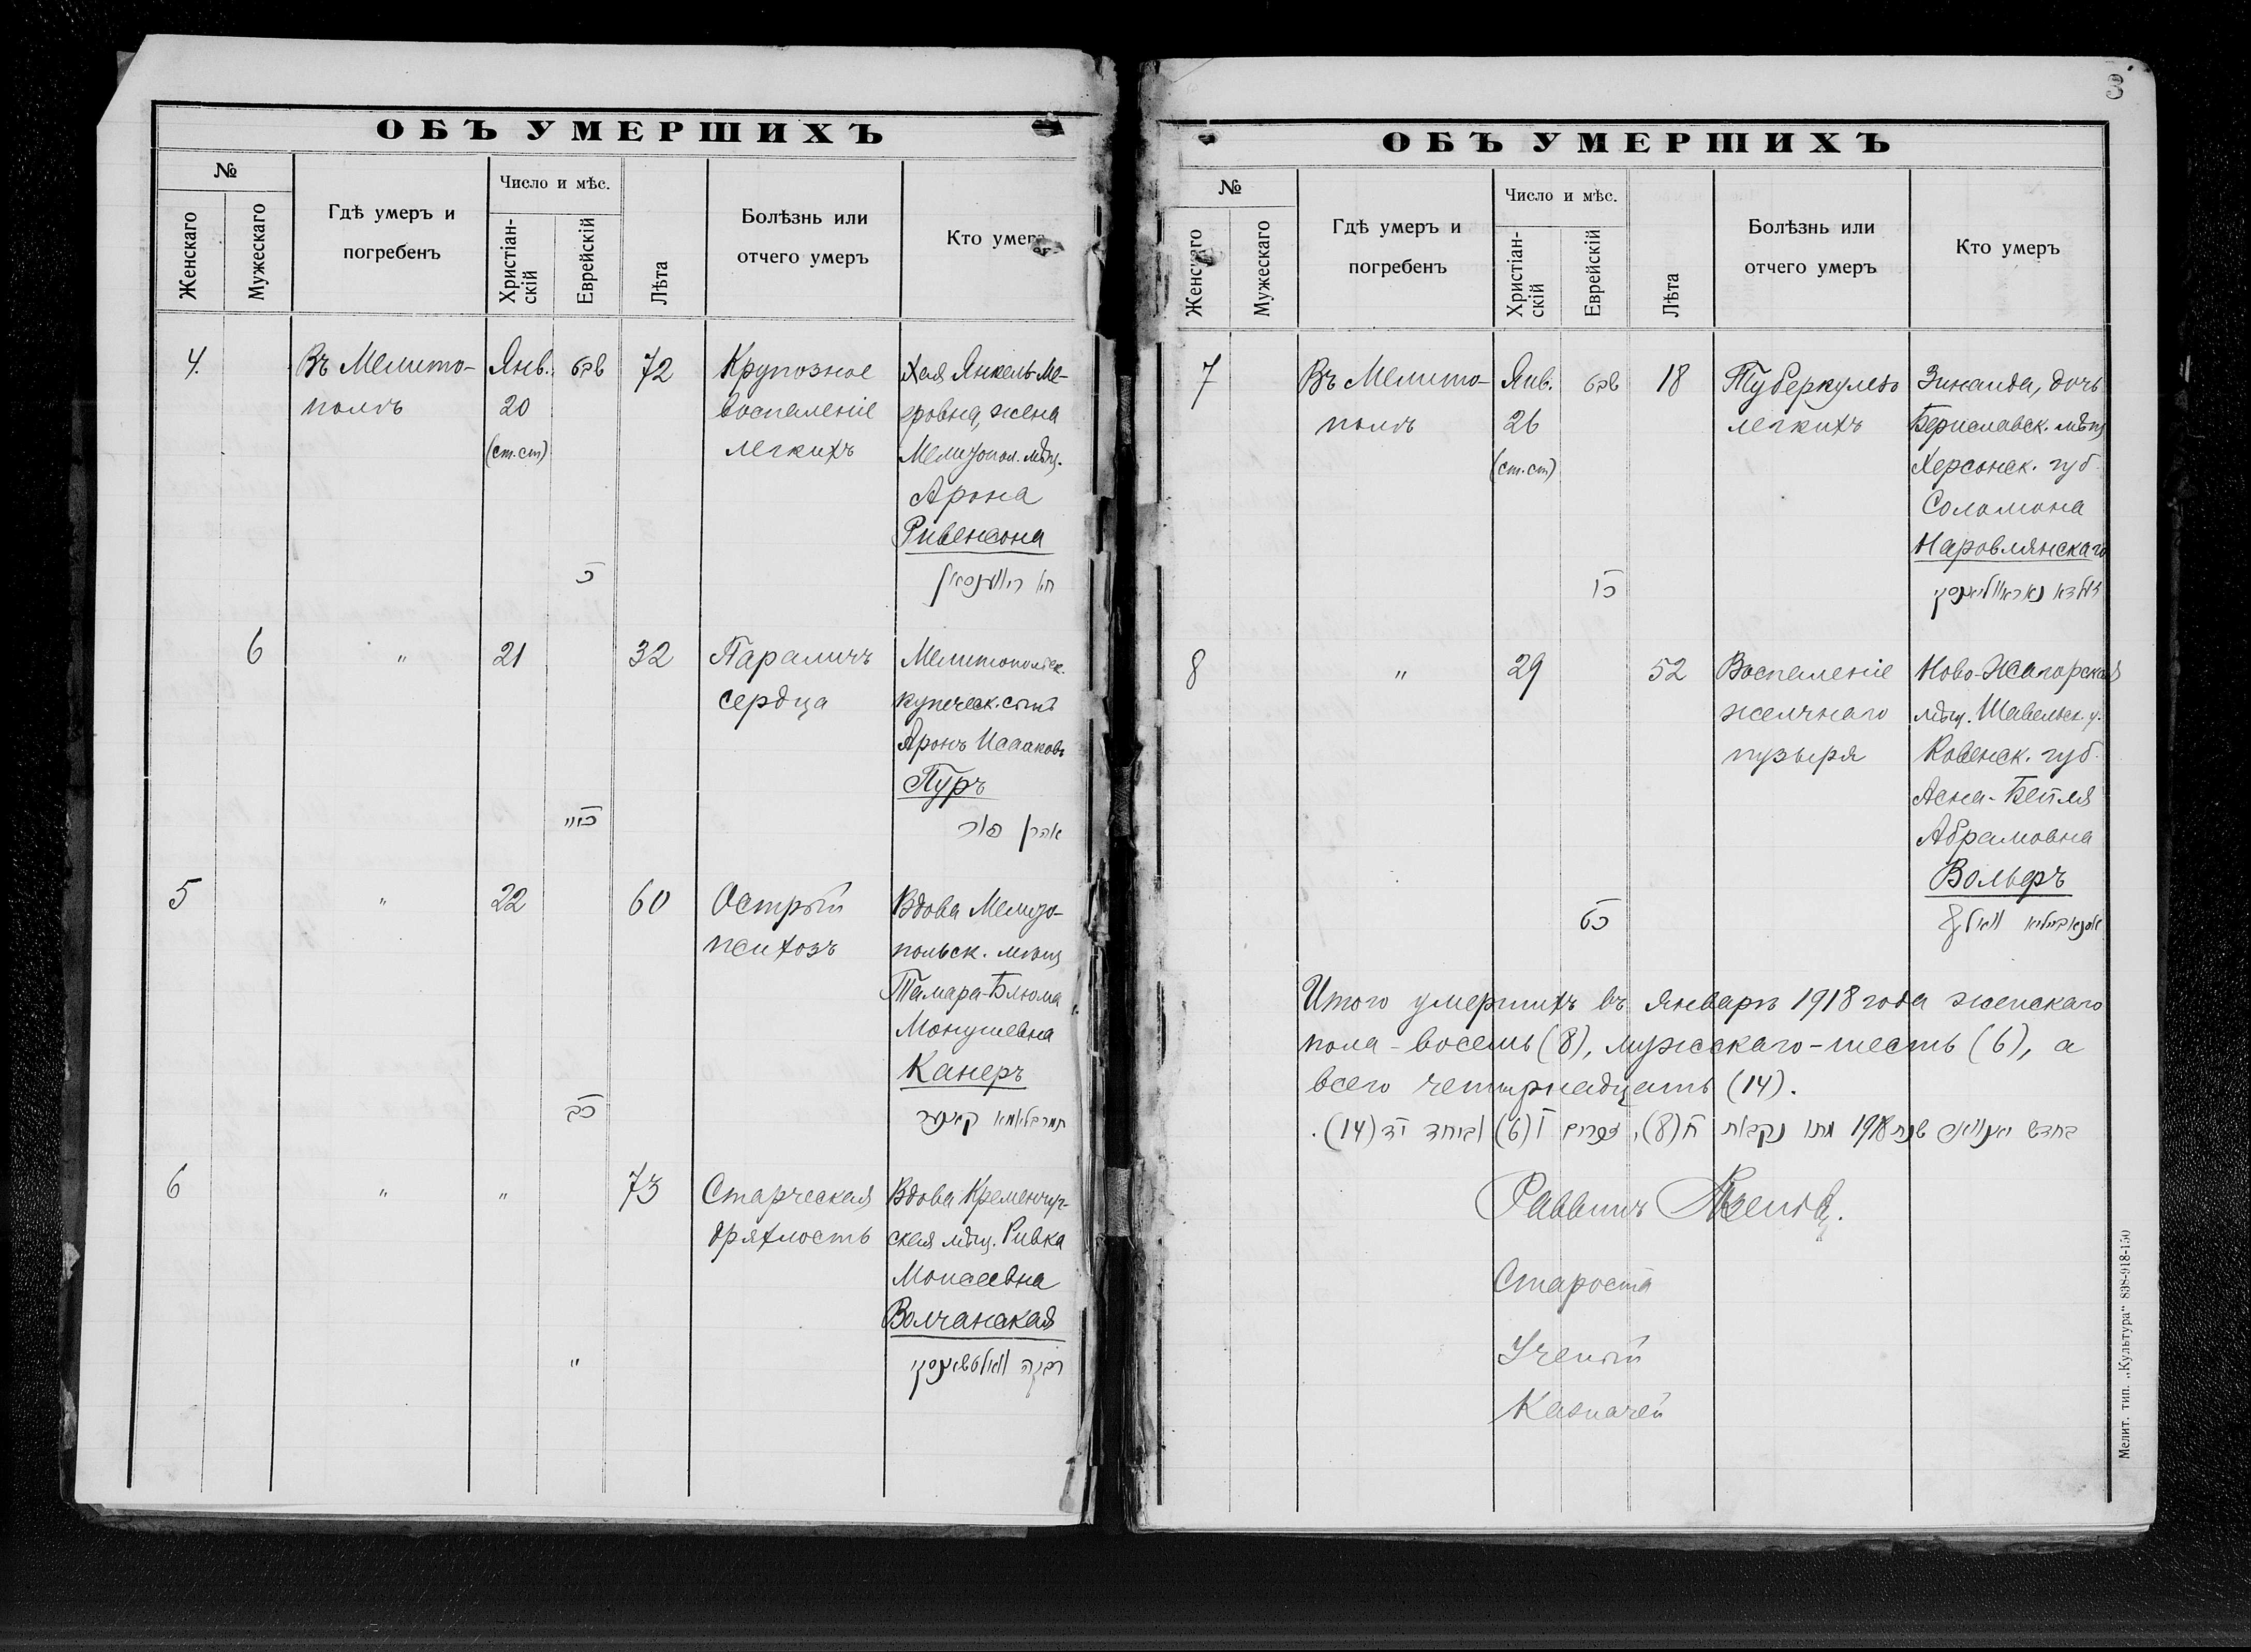 ОБЪ УМЕРШИХЪ
№
Женскаго
Мужескаго
Гдѣ умеръ и
погребенъ
Число и мѣс.
Христіан-
скій
Еврейскій
Лѣта
Болѣзнь или
отчего умеръ
Кто умеръ
4.
Въ Мелито-
полѣ
Янв.
20
(ст.ст)
שבט
כ
72
Крупозное
воспаленіе
легкихъ
Хая Янкель-Ме-
еровна, жена
Мелитопол. мѣщ.
Арона
Ривенсона
חיה
6
"
21
32
Параличъ
сердца
Мелитопольск.
купеческ. сынъ
Аронъ Исааковъ
Пуръ
אהרן פור
5
"
22
כב
60
Острый
психозъ
Вдова Мелито-
польск. мѣщ
Тамара-Блюма
Монушевна
Канеръ
6
"
"
"
73
Старческая
дряхлость
Вдова Кременчуг-
ская мѣщ. Ривка
Моисеевна
Волчанская
רבקה וואלטשאנסקי
3
ОБЪ УМЕРШИХЪ
№
Женскаго
Мужескаго
Гдѣ умеръ и
погребенъ
Число и мѣс.
Христіан-
скій
Еврейскій
Лѣта
Болѣзнь или
отчего умеръ
Кто умеръ
7
Въ Мелито-
полѣ
Янв.
26
(ст.ст)
שבט
כו
18
Туберкулезъ
легкихъ
Зинаида, дочь
Бериславск. мѣщ
Херсонск. губ.
Соломона
Наровлянскаго
נאראווליאנסקי
8
"
29
כט
52
Воспаленіе
желчнаго
пузыря
Ново-Жагорская
мѣщ. Шавельск. у.
Ковенск. губ.
Асна-Бейля
Абрамовна
Вольфъ
וואלף
Итого умершихъ въ январѣ 1918 года женскаго
пола - восемь (8), мужескаго - шесть (6), а
всего четырнадцать (14).
בחדש יאנוואר שנת 1918 מתו נקבות ח (8), זכרים ו (6) וביחד יד (14).
Раввинъ
Староста
Ученый
Казначей
Мелит. тип. „Культура“ 838-918-150